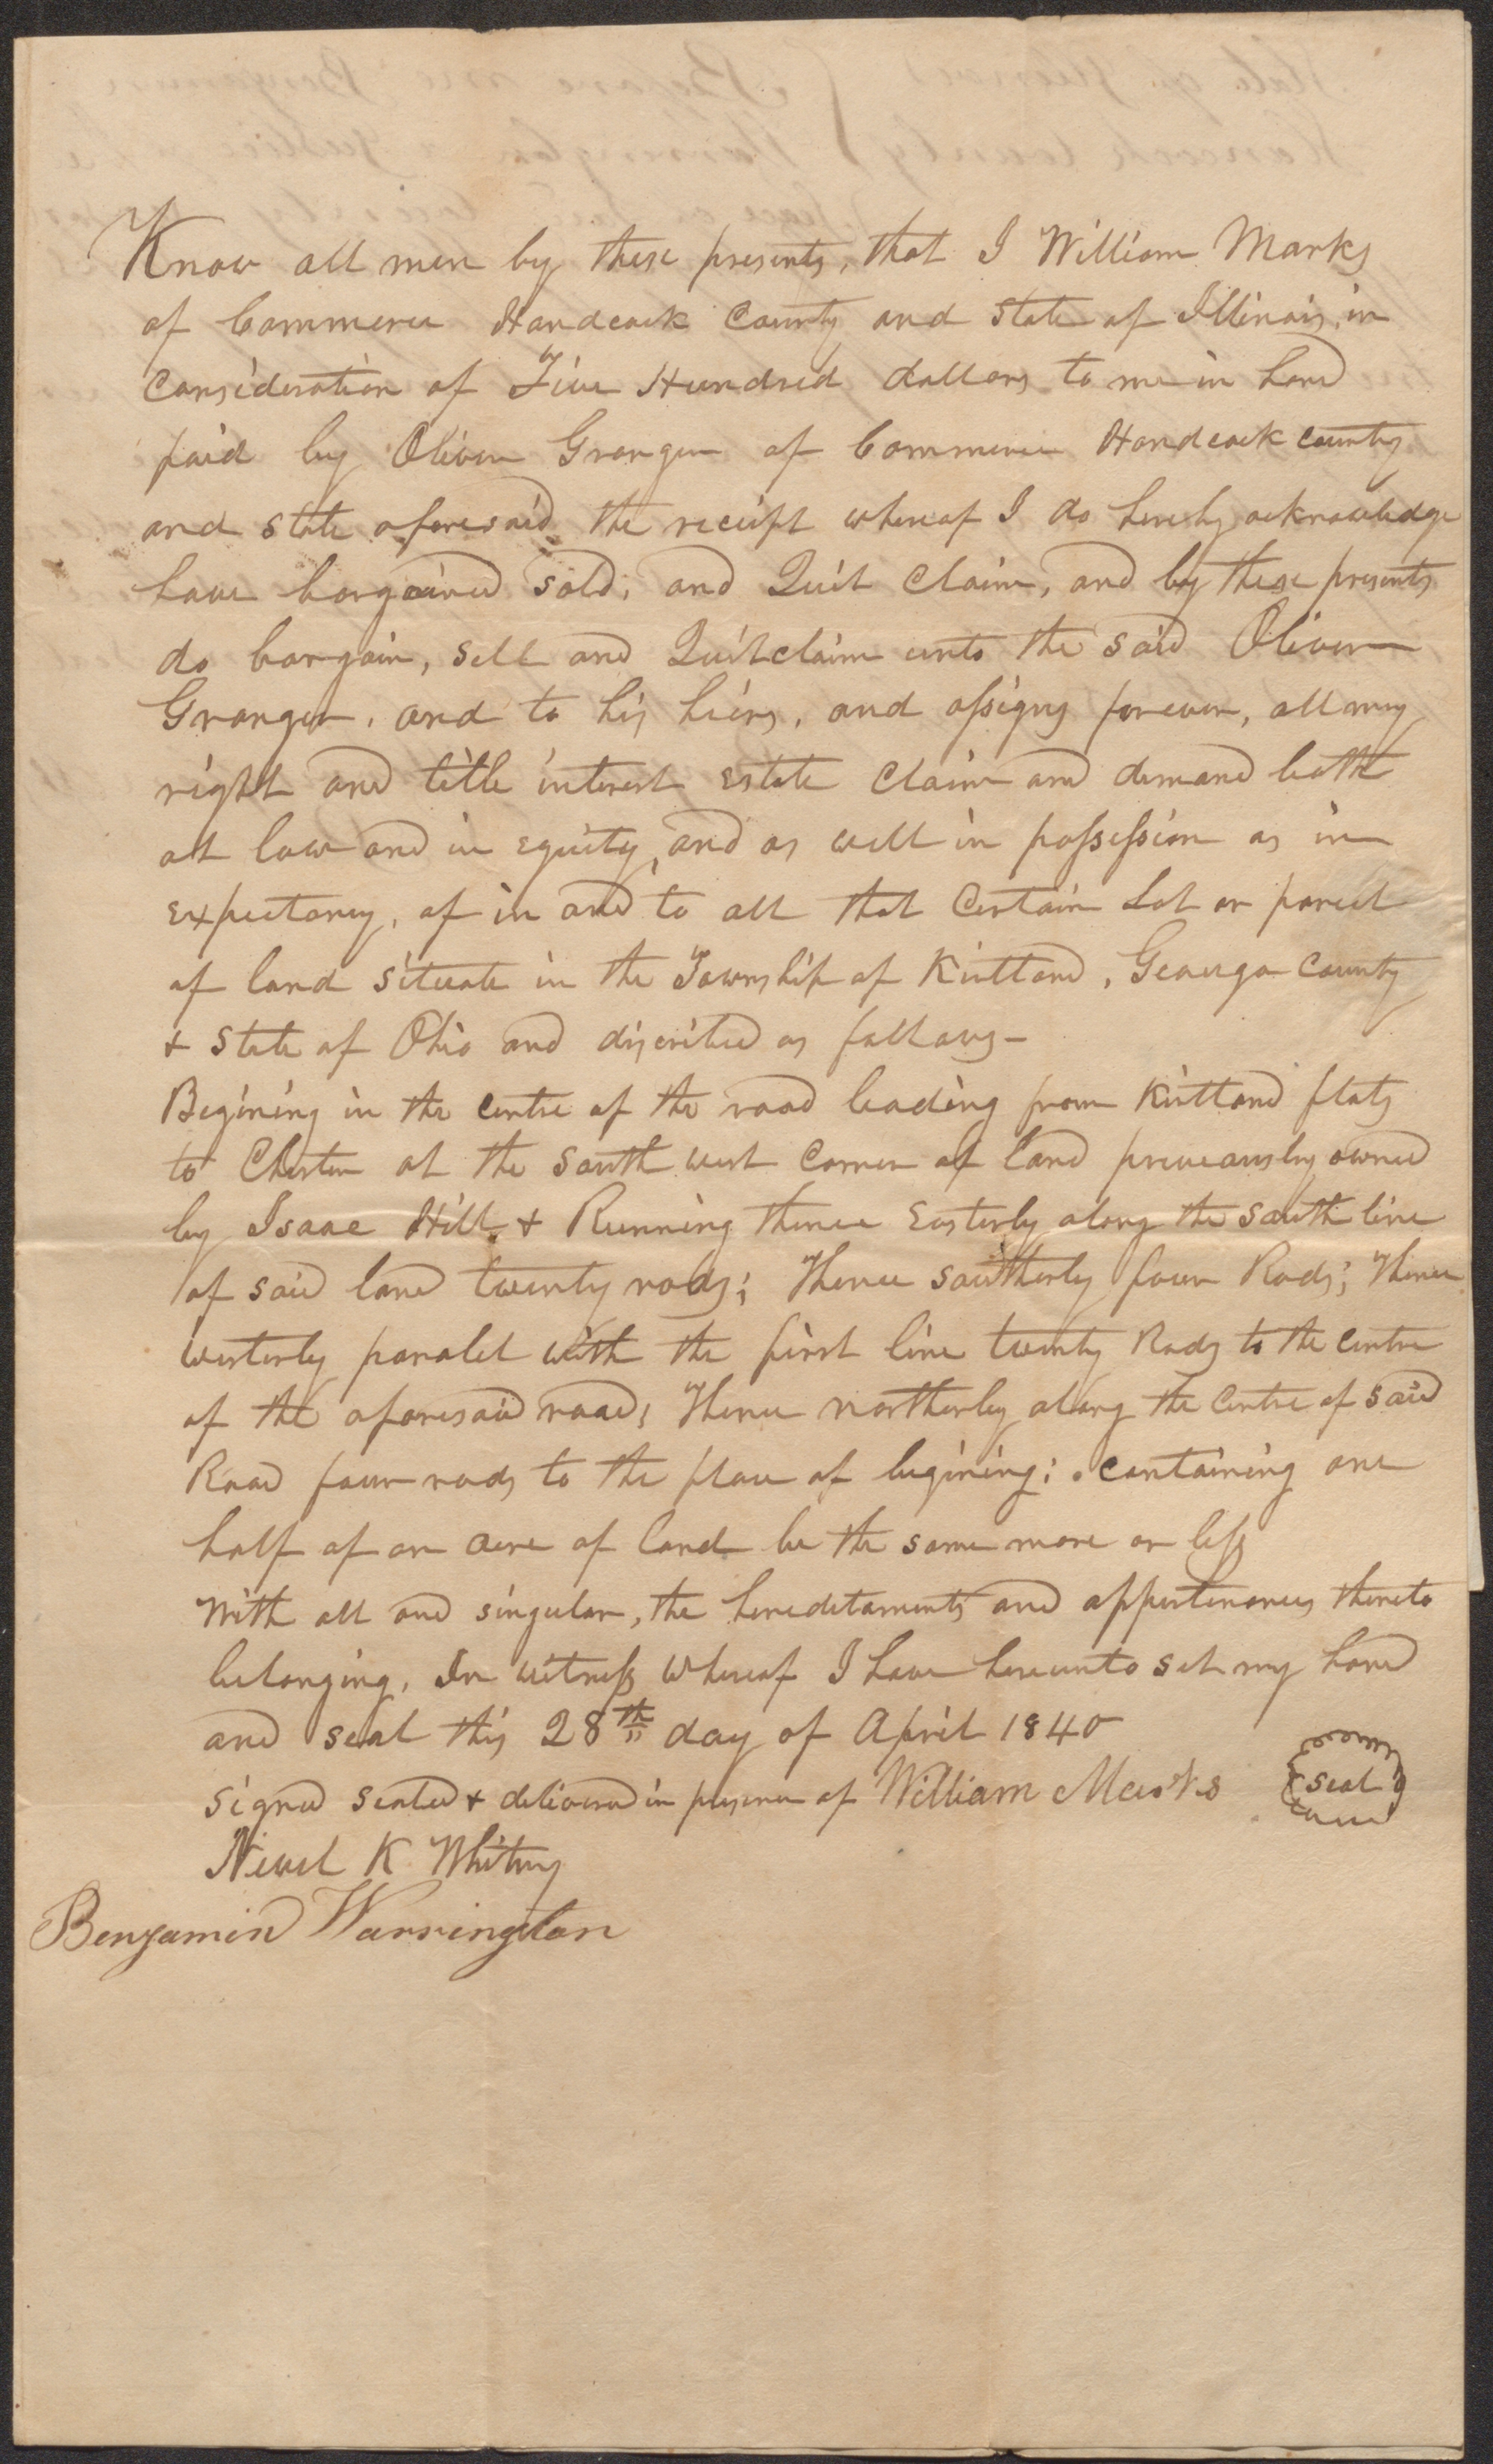 Know all men by these presents, that I William Marks
of Commerce Handcock County and State of Illinois, in
Consideration of Five Hundred dollars to me in hand
paid by Oliver Granger of Commerce Handcock county
and state aforesaid the receipt whereof I do hereby acknowledge
have bargained sold, and Quit Claim, and by these presents
do bargain, sell and Quitclaim unto the said Oliver
Granger, and to his hiers, and assigns forever, all my
right and title interest estate claim and demand both
at law and in equity, and as well in possession as in
expectancy, of in and to all that Certain Lot or parcel
of land situate in the Township of Kirtland, Geauga County
+ State of Ohio and discribed as follows-
Begining in the centre of the road leading from Kirtland flats
to Chester at the south west corner of land preveously owned
by Isaac Hill + Running thence Easterly along the south line
of said land twenty rods; Thence southerly four Rods; Thence
westerly paralel with the first line twenty Rods to the centre
of the aforesaid road; Thence northerly along the Centre of said
Road four rods to the place of begining; containing one
half of an acre of land be the same more or less
With all and singular, the hereditaments and appurtenances thereto
belonging, In witness whereof I have hereunto set my hand
and seal this 28th day of April 1840
signed sealed + delivered in presence of William Marks seal
Newel K Whitney
Benjamin Warrington